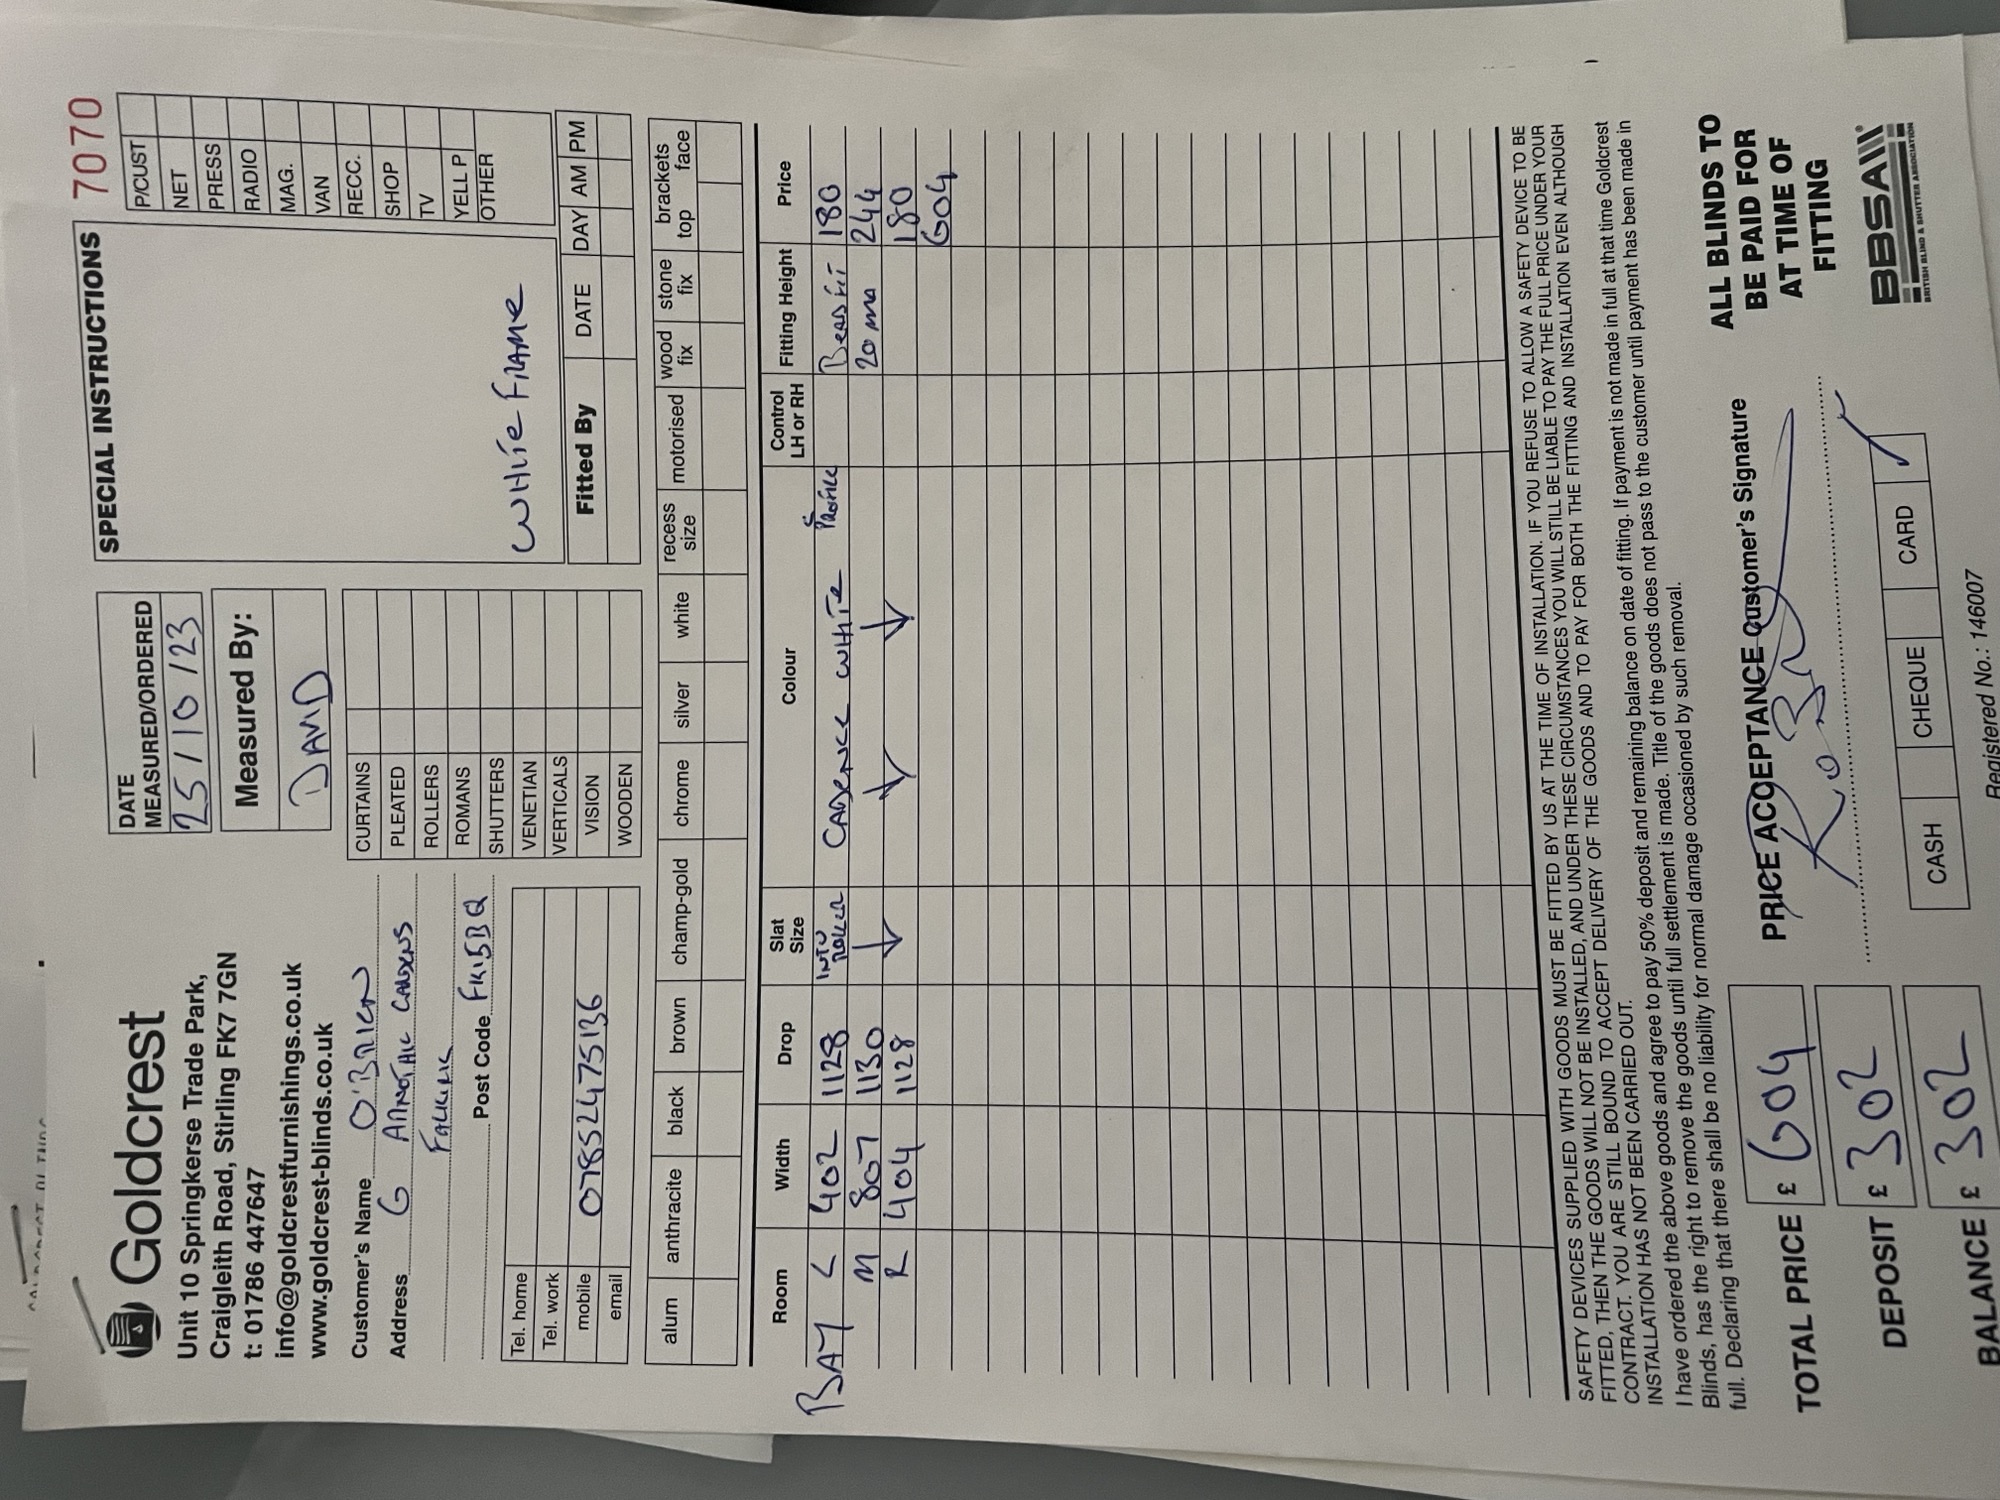 Goldcrest
Unit 10 Springkerse Trade Park,
Craigleith Road, Stirling FK7 7GN
t: 01786 447647
info@goldcrestfurnishings.co.uk
www.goldcrest-blinds.co.uk
Customer's Name O'BRIEN
Address 6
FALKIRK
Post Code
Tel. home
Tel. work
mobile 07852475136
email
DATE
MEASURED/ORDERED
25/10/23
Measured By:
DAVID
CURTAINS
PLEATED
ROLLERS
ROMANS
SHUTTERS
VENETIAN
VERTICALS
VISION
WOODEN
SPECIAL INSTRUCTIONS
WHITE FRAME
7070
P/CUST
NET
PRESS
RADIO
MAG.
VAN
RECC.
SHOP
TV
YELL P
OTHER
Fitted By DATE DAY AM PM
alum anthracite black brown champ-gold chrome silver white recess size motorised wood fix stone fix brackets top face
Room Width Drop Slat Size Colour Control LH or RH Fitting Height Price
BAY L 402 1128 INTU ROLLER WHITE PROFILE 180
M 807 1130 20 mm 244
R 404 1128 180
604
SAFETY DEVICES SUPPLIED WITH GOODS MUST BE FITTED BY US AT THE TIME OF INSTALLATION. IF YOU REFUSE TO ALLOW A SAFETY DEVICE TO BE
FITTED, THEN THE GOODS WILL NOT BE INSTALLED, AND UNDER THESE CIRCUMSTANCES YOU WILL STILL BE LIABLE TO PAY THE FULL PRICE UNDER YOUR
CONTRACT. YOU ARE STILL BOUND TO ACCEPT DELIVERY OF THE GOODS AND TO PAY FOR BOTH THE FITTING AND INSTALLATION EVEN ALTHOUGH
INSTALLATION HAS NOT BEEN CARRIED OUT.
I have ordered the above goods and agree to pay 50% deposit and remaining balance on date of fitting. If payment is not made in full at that time Goldcrest
Blinds, has the right to remove the goods until full settlement is made. Title of the goods does not pass to the customer until payment has been made in
full. Declaring that there shall be no liability for normal damage occasioned by such removal.
TOTAL PRICE £ 604
DEPOSIT £ 302
BALANCE £ 302
PRICE ACCEPTANCE Customer's Signature
CASH CHEQUE CARD ✓
ALL BLINDS TO
BE PAID FOR
AT TIME OF
FITTING
BBSA
BRITISH BLIND & SHUTTER ASSOCIATION
Registered No.: 146007